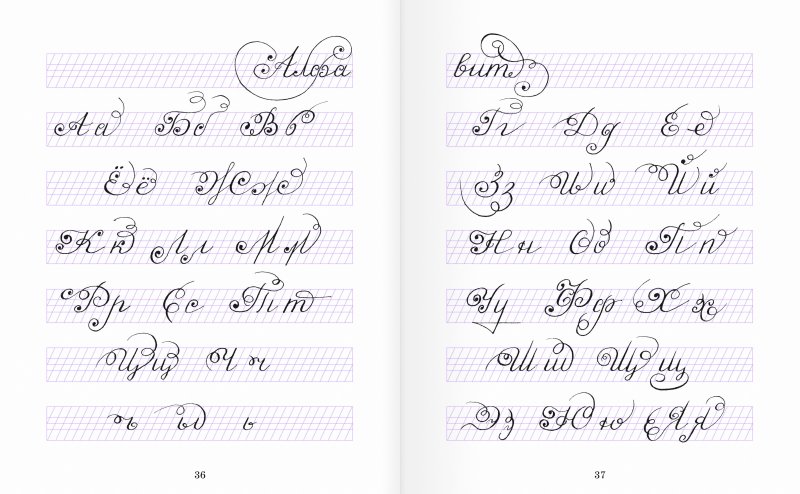 Алфавит
Аа Бб Вв Гг Дд Ее
Ёё Жж Зз Ии Йй
Кк Лл Мм Нн Оо Пп
Рр Сс Тт Уу Фф Хх
Цц Чч Шш Щщ
ъ ы ь Ээ Юю Яя
36 37